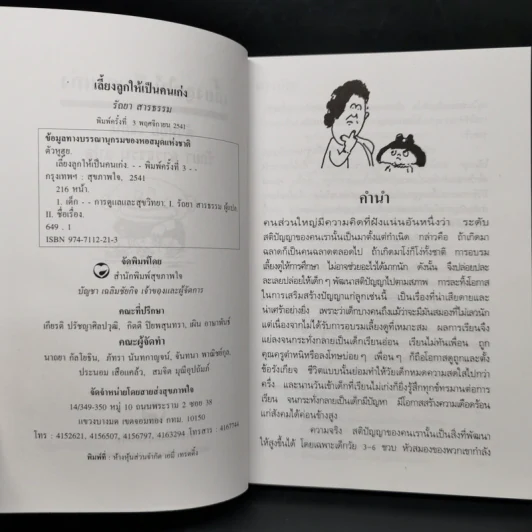 เลี้ยงลูกให้เป็นคนเก่ง
รัถยา สารธรรม
พิมพ์ครั้งที่ 3 พฤศจิกายน 2541
ข้อมูลทางบรรณานุกรมของหอสมุดแห่งชาติ
เลี้ยงลูกให้เป็นคนเก่ง. - - พิมพ์ครั้งที่ 3 - -
กรุงเทพฯ : สุขภาพใจ, 2541
216 หน้า.
1. เด็ก - - การดูแลและสุขวิทยา. I. รัถยา สารธรรม ผู้แปล.
II. ชื่อเรื่อง.
649 . 1
ISBN 974-7112-21-3
จัดพิมพ์โดย
สำนักพิมพ์สุขภาพใจ
บัญชา เฉลิมชัยกิจ เจ้าของและผู้จัดการ
คณะที่ปรึกษา
เกียรติ ปรัชญาศิลปวุฒิ, กิตติ ปิยพสุนทรา, ผัน ภาษาพันธ์
คณะผู้จัดทำ
นาถยา กัลโยธิน, ภัทรา นันทกาญจน์, จันทนา พาณิชย์กุล,
ประนอม เสือแคล้ว, สมจิต มุณีอุปถัมภ์
จัดจำหน่ายโดยสายส่งสุขภาพใจ
14/349-350 หมู่ 10 ถนนพระราม 2 ซอย 38
แขวงบางมด เขตจอมทอง กทม. 10150
โทร : 4152621, 4156507, 4156797, 4163294 โทรสาร : 4167744
พิมพ์ที่ : ห้างหุ้นส่วนจำกัด เอ็มี่ เทรดดิ้ง
คำนำ
คนส่วนใหญ่มีความคิดที่ฝังแน่นอันหนึ่งว่า ระดับ
สติปัญญาของคนเรานั้นเป็นมาตั้งแต่กำเนิด กล่าวคือ ถ้าเกิดมา
ฉลาดก็เป็นคนฉลาดตลอดไป ถ้าเกิดมาโง่ก็โง่ทั้งชาติ การอบรม
เลี้ยงดูให้การศึกษา ไม่อาจช่วยอะไรได้มากนัก ดังนั้น จึงปล่อยปละ
ละเลยปล่อยให้เด็กๆ พัฒนาสติปัญญาไปตามสภาพ การละทิ้งโอกาส
ในการเสริมสร้างปัญญาแก่ลูกเช่นนี้ เป็นเรื่องที่น่าเสียดายและ
น่าเศร้าอย่างยิ่ง เพราะว่าเด็กบางคนถึงแม้ว่าจะมีมันสมองที่ไม่เลวนัก
แต่เนื่องจากไม่ได้รับการอบรมเลี้ยงดูที่เหมาะสม ผลการเรียนจึง
แย่ลงจนกระทั่งกลายเป็นเด็กเรียนอ่อน เรียนไม่ทันเพื่อน ถูก
คุณครูตำหนิหรือลงโทษบ่อยๆ เพื่อนๆ ก็ถือโอกาสดูถูกและตั้ง
ข้อรังเกียจ ชีวิตแบบนั้นย่อมทำให้วัยเด็กหมดความสดใสไปกว่า
ครึ่ง และนานวันเข้าเด็กที่เรียนไม่เก่งก็ยิ่งรู้สึกทุกข์ทรมานต่อการ
เรียน จนกระทั่งกลายเป็นเด็กมีปัญหา มีโอกาสสร้างความเดือดร้อน
แก่สังคมได้ค่อนข้างสูง
ความจริง สติปัญญาของคนเรานั้นเป็นสิ่งที่พัฒนา
ให้สูงขึ้นได้ โดยเฉพาะเด็กวัย 3-6 ขวบ หัวสมองของพวกเขากำลัง